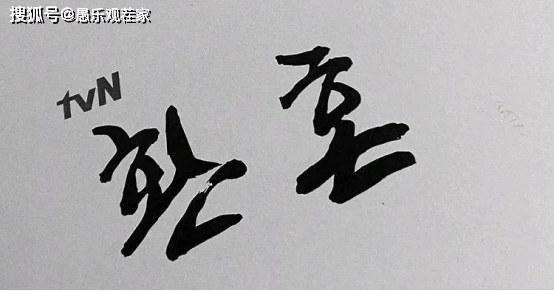 搜狐号@愚乐观茬家
tvN
환혼